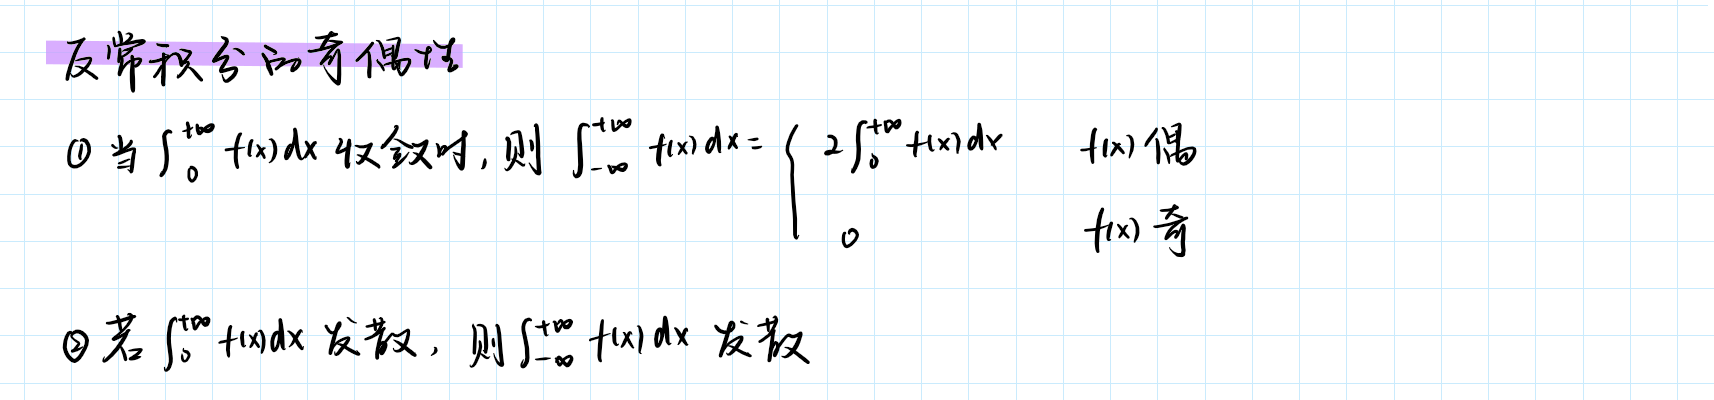 反常积分的奇偶性
① 当 ∫₀^{+∞} f(x)dx 收敛时, 则 ∫_{-∞}^{+∞} f(x)dx = { 2∫₀^{+∞} f(x)dx f(x) 偶
0 f(x) 奇
② 若 ∫₀^{+∞} f(x)dx 发散, 则 ∫_{-∞}^{+∞} f(x)dx 发散